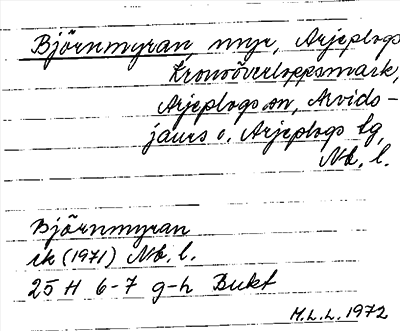 Björnmyran, myr, Arjeplogs
kronoöverloppsmark,
Arjeplogs sn, Arvids-
jaurs o. Arjeplogs tg
Nb. l.
Björnmyran
ek (1971) Nb. l.
25 H 6-7 g-h Bukt
M.L.L. 1972